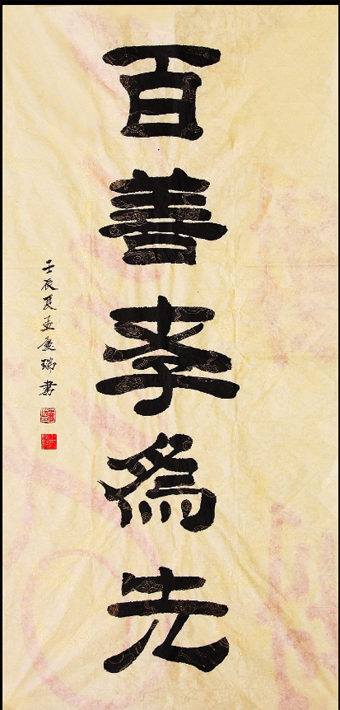 百善孝為先
壬辰夏孟慶瑞書